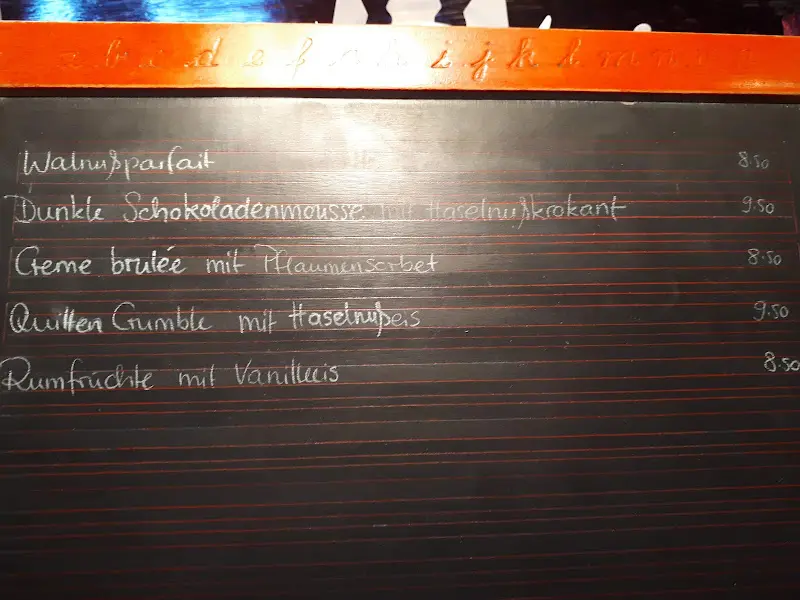 a b c d e f g h i j k l m n o
Walnußparfait 8.50
Dunkle Schokoladenmousse mit Haselnußkrokant 9.50
Creme brulée mit Pflaumensorbet 8.50
Quitten Crumble mit Haselnußeis 9.50
Rumfrüchte mit Vanilleeis 8.50